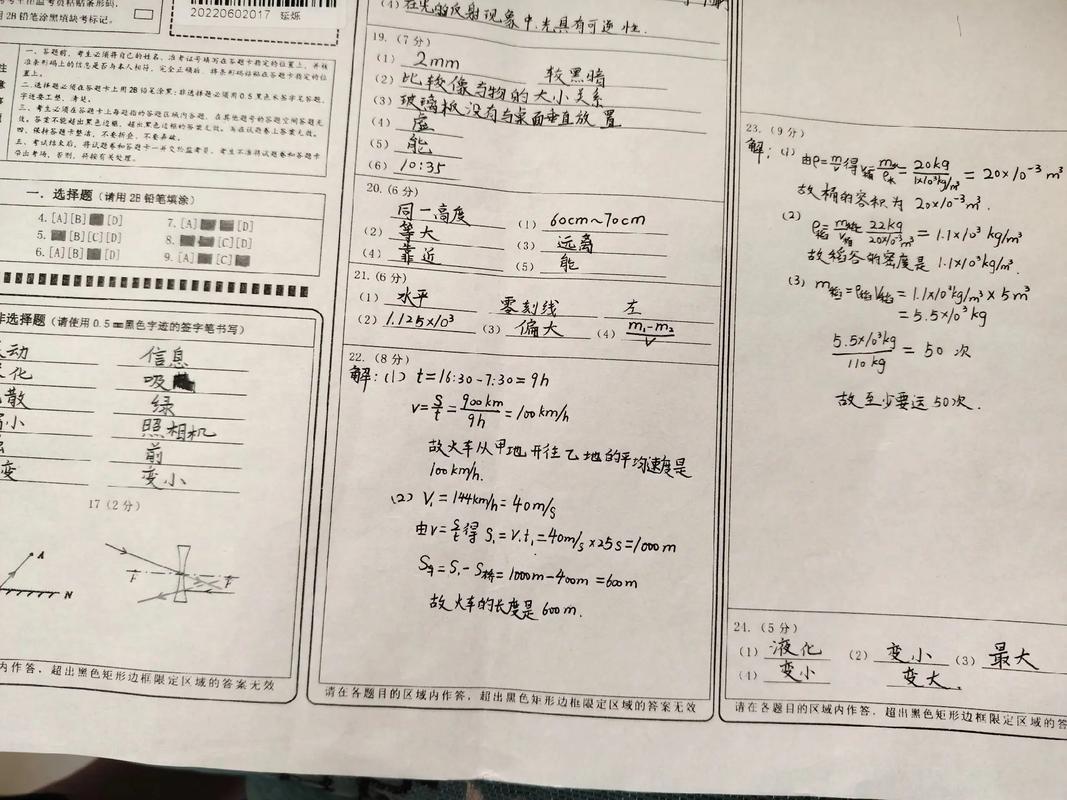 考生粘贴条形码.
用2B铅笔涂黑缺考标记。
20220602017 延烁
一、答题前，考生必须将自己的姓名、准考证号填写在答题卡指定的位置上，并核
准条形码上的信息是否与本人相符，完全正确后，将条形码粘贴在答题卡指定的位
置上。
二、选择题必须在答题卡上用2B铅笔涂黑；非选择题必须用0.5黑色水签字笔答题，
字迹要工整、清楚。
三、考生必须在答题卡上每题指的答题区域内答题，在其他题号的答题空间答题无
效。答案不能超出黑色边框，超出黑色边框的答案无效。写在试题卷上答案无效。
四、保持答题卡整洁，不要折叠，不要弄破。
五、考试结束后，将试题卷和答题卡一并交给监考员，考生不准将试题卷和答题卡
带出考场，否则，将按有关处理。
一、选择题（请用2B铅笔填涂）
4. [A] [B] [D] 7. [A] [D]
5. [B] [C] [D] 8. [C] [D]
6. [A] [B] [D] 9. [A] [C]
非选择题（请使用0.5㎜黑色字迹的签字笔书写）
动 信息
化 吸
散 绿
小 照相机
前
变 变小
17（2分）
A
N
F F
内作答，超出黑色矩形边框限定区域的答案无效
(4) 在光的反射现象中,光具有可逆性.
19.（7分）
（1） 2mm 较黑暗
（2） 比较像与物的大小关系
（3） 玻璃板没有与桌面垂直放置
（4） 虚
（5） 能
（6） 10:35
20.（6分）
同一高度 （1） 60cm~70cm
（2） 等大 （3） 远离
（4） 靠近 （5） 能
21.（6分）
（1） 水平 零刻线 左
（2） 1.125×10³ （3） 偏大 （4） m₁-m₂/V
22.（8分）
解:(1) t=16:30-7:30=9h
v=s/t=900km/9h=100km/h
故火车从甲地开往乙地的平均速度是
100km/h.
(2) V₁=144km/h=40m/s
由v=s/t得 S₁=V₁t₁=40m/s×25s=1000m
S车=S₁-S桥=1000m-400m=600m
故火车的长度是600m.
请在各题目的区域内作答，超出黑色矩形边框限定区域的答案无效
23.（9分）
解:(1) 由ρ=m/v得V桶=m水/ρ水=20kg/1×10³kg/m³=20×10⁻³m³
故桶的容积为 20×10⁻³m³.
(2)
ρ稻=m稻/V桶=22kg/20×10⁻³m³=1.1×10³kg/m³
故稻谷的密度是1.1×10³kg/m³.
(3) m稻=ρ稻V稻=1.1×10³kg/m³×5m³
=5.5×10³kg
5.5×10³kg/110kg=50次
故至少要运50次.
24.（5分）
（1） 液化 （2） 变小 （3） 最大
（4） 变小 变大.
请在各题目的区域内作答，超出黑色矩形边框限定区域的答